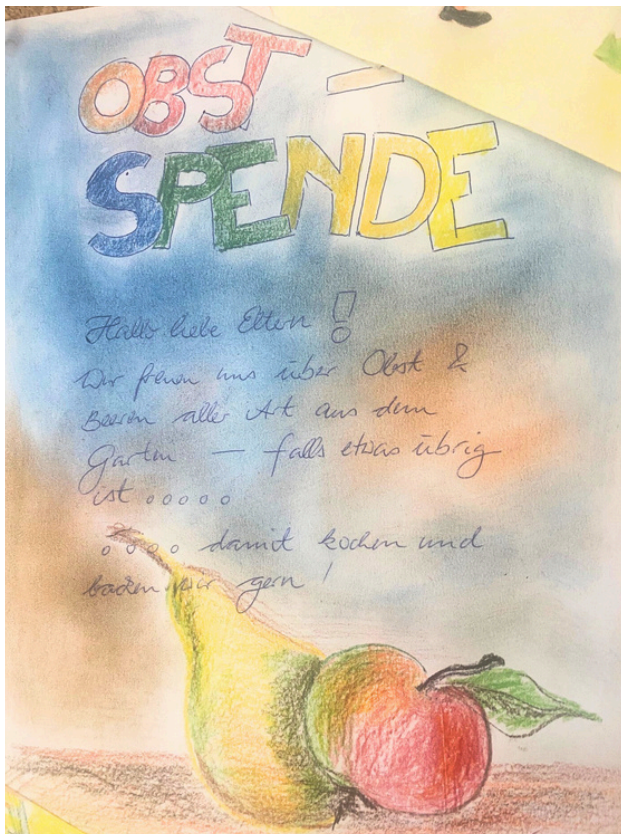 OBST –
SPENDE
Hallo liebe Eltern !
Wir freuen uns über Obst &
Beeren aller Art aus dem
Garten — falls etwas übrig
ist ooooo
oooo damit kochen und
backen wir gern !